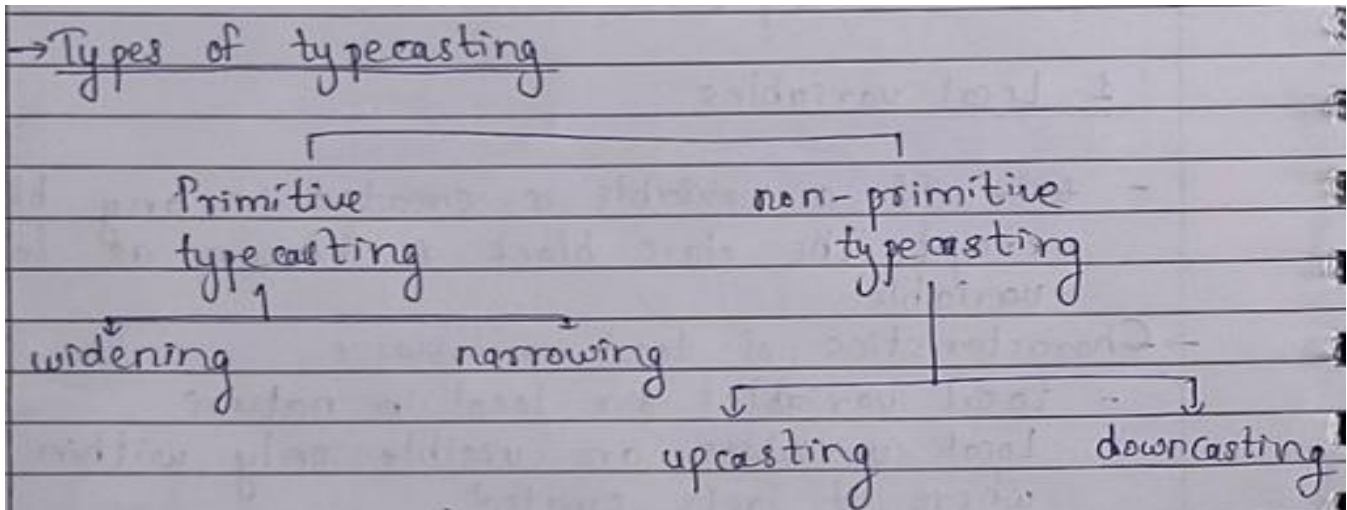 →Types of typecasting
Primitive non-primitive
typecasting typecasting
widening narrowing
upcasting downcasting